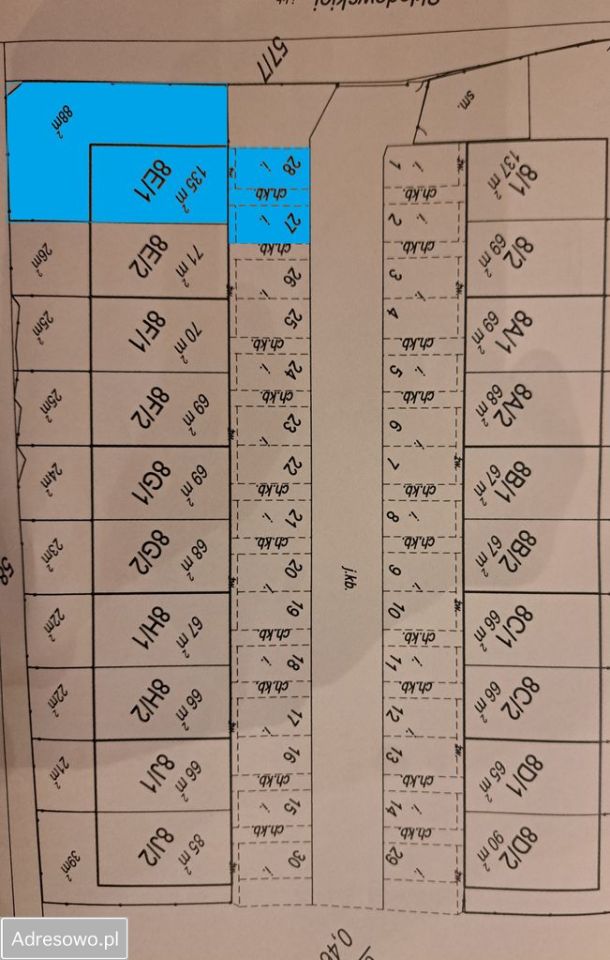 Skłodowskiej
57/7
88m²
8E/1
135 m²
28
ch.kb.
27
ch.kb.
1
ch.kb.
2
ch.kb.
sm.
8/1
137 m²
26m²
8E/2
71 m²
26
3
8/2
69 m²
25m²
8F/1
70 m²
25
ch.kb.
4
ch.kb.
8A/1
69 m²
25m²
8F/2
69 m²
24
ch.kb.
23
5
ch.kb.
6
8A/2
68 m²
24m²
8G/1
69 m²
22
ch.kb.
7
ch.kb.
8B/1
67 m²
23m²
8G/2
68 m²
21
ch.kb.
20
j.kb.
8
ch.kb.
9
8B/2
67 m²
58
22m²
8H/1
67 m²
19
ch.kb.
10
ch.kb.
8C/1
66 m²
22m²
8H/2
66 m²
18
ch.kb.
17
11
ch.kb.
12
8C/2
66 m²
21m²
8J/1
66 m²
16
ch.kb.
13
ch.kb.
8D/1
65 m²
39m²
8J/2
85 m²
15
ch.kb.
30
14
ch.kb.
29
8D/2
90 m²
Adresowo.pl